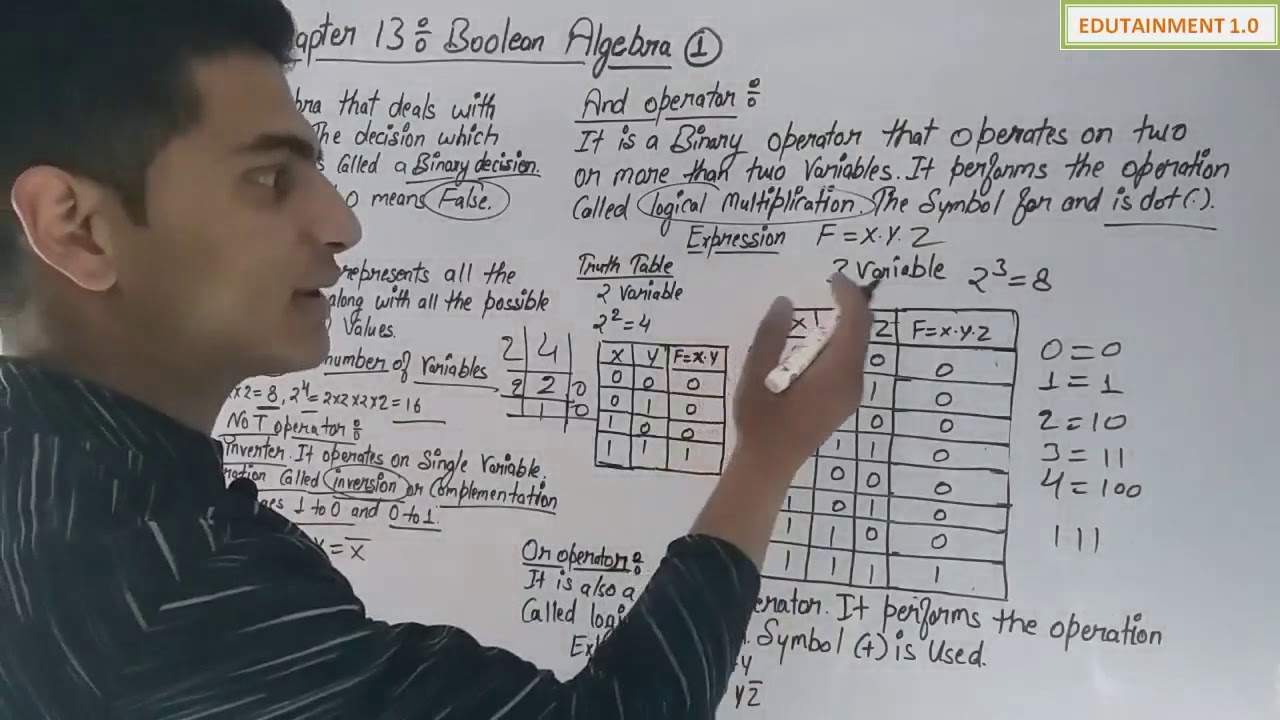 EDUTAINMENT 1.0
apter 13: Boolean Algebra 1
bra that deals with
The decision which
is Called a Binary decision.
0 means False.
represents all the
along with all the possible
Values.
number of variables
x2=8, 2^4=2x2x2x2=16
NOT operator:
Inverter. It operates on Single Variable.
ration Called inversion or Complementation
ges 1 to 0 and 0 to 1.
= X̅
And operator:
It is a Binary operator that operates on two
or more than two Variables. It performs the operation
Called logical Multiplication. The Symbol for and is dot (·).
Expression F = X·Y·Z
Truth Table
2 variable
2^2=4
2 4
2 2 0
1 0
X Y F=X·Y
0 0 0
0 1 0
1 0 0
1 1 1
variable 2^3=8
X Z F=X·Y·Z
0 0
1 0
0 0
1 1 0
0 0 0
1 0 1 0
1 1 0 0
1 1 1 1
0=0
1=1
2=10
3=11
4=100
111
Or operator:
It is also a erator. It performs the operation
Called logi Symbol (+) is Used.
Ex
Y
YZ̅